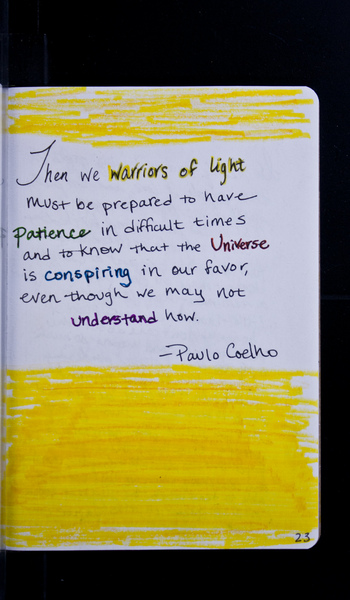 Then we warriors of light
must be prepared to have
patience in difficult times
and to know that the Universe
is conspiring in our favor,
even though we may not
understand how.
-Paulo Coelho
23